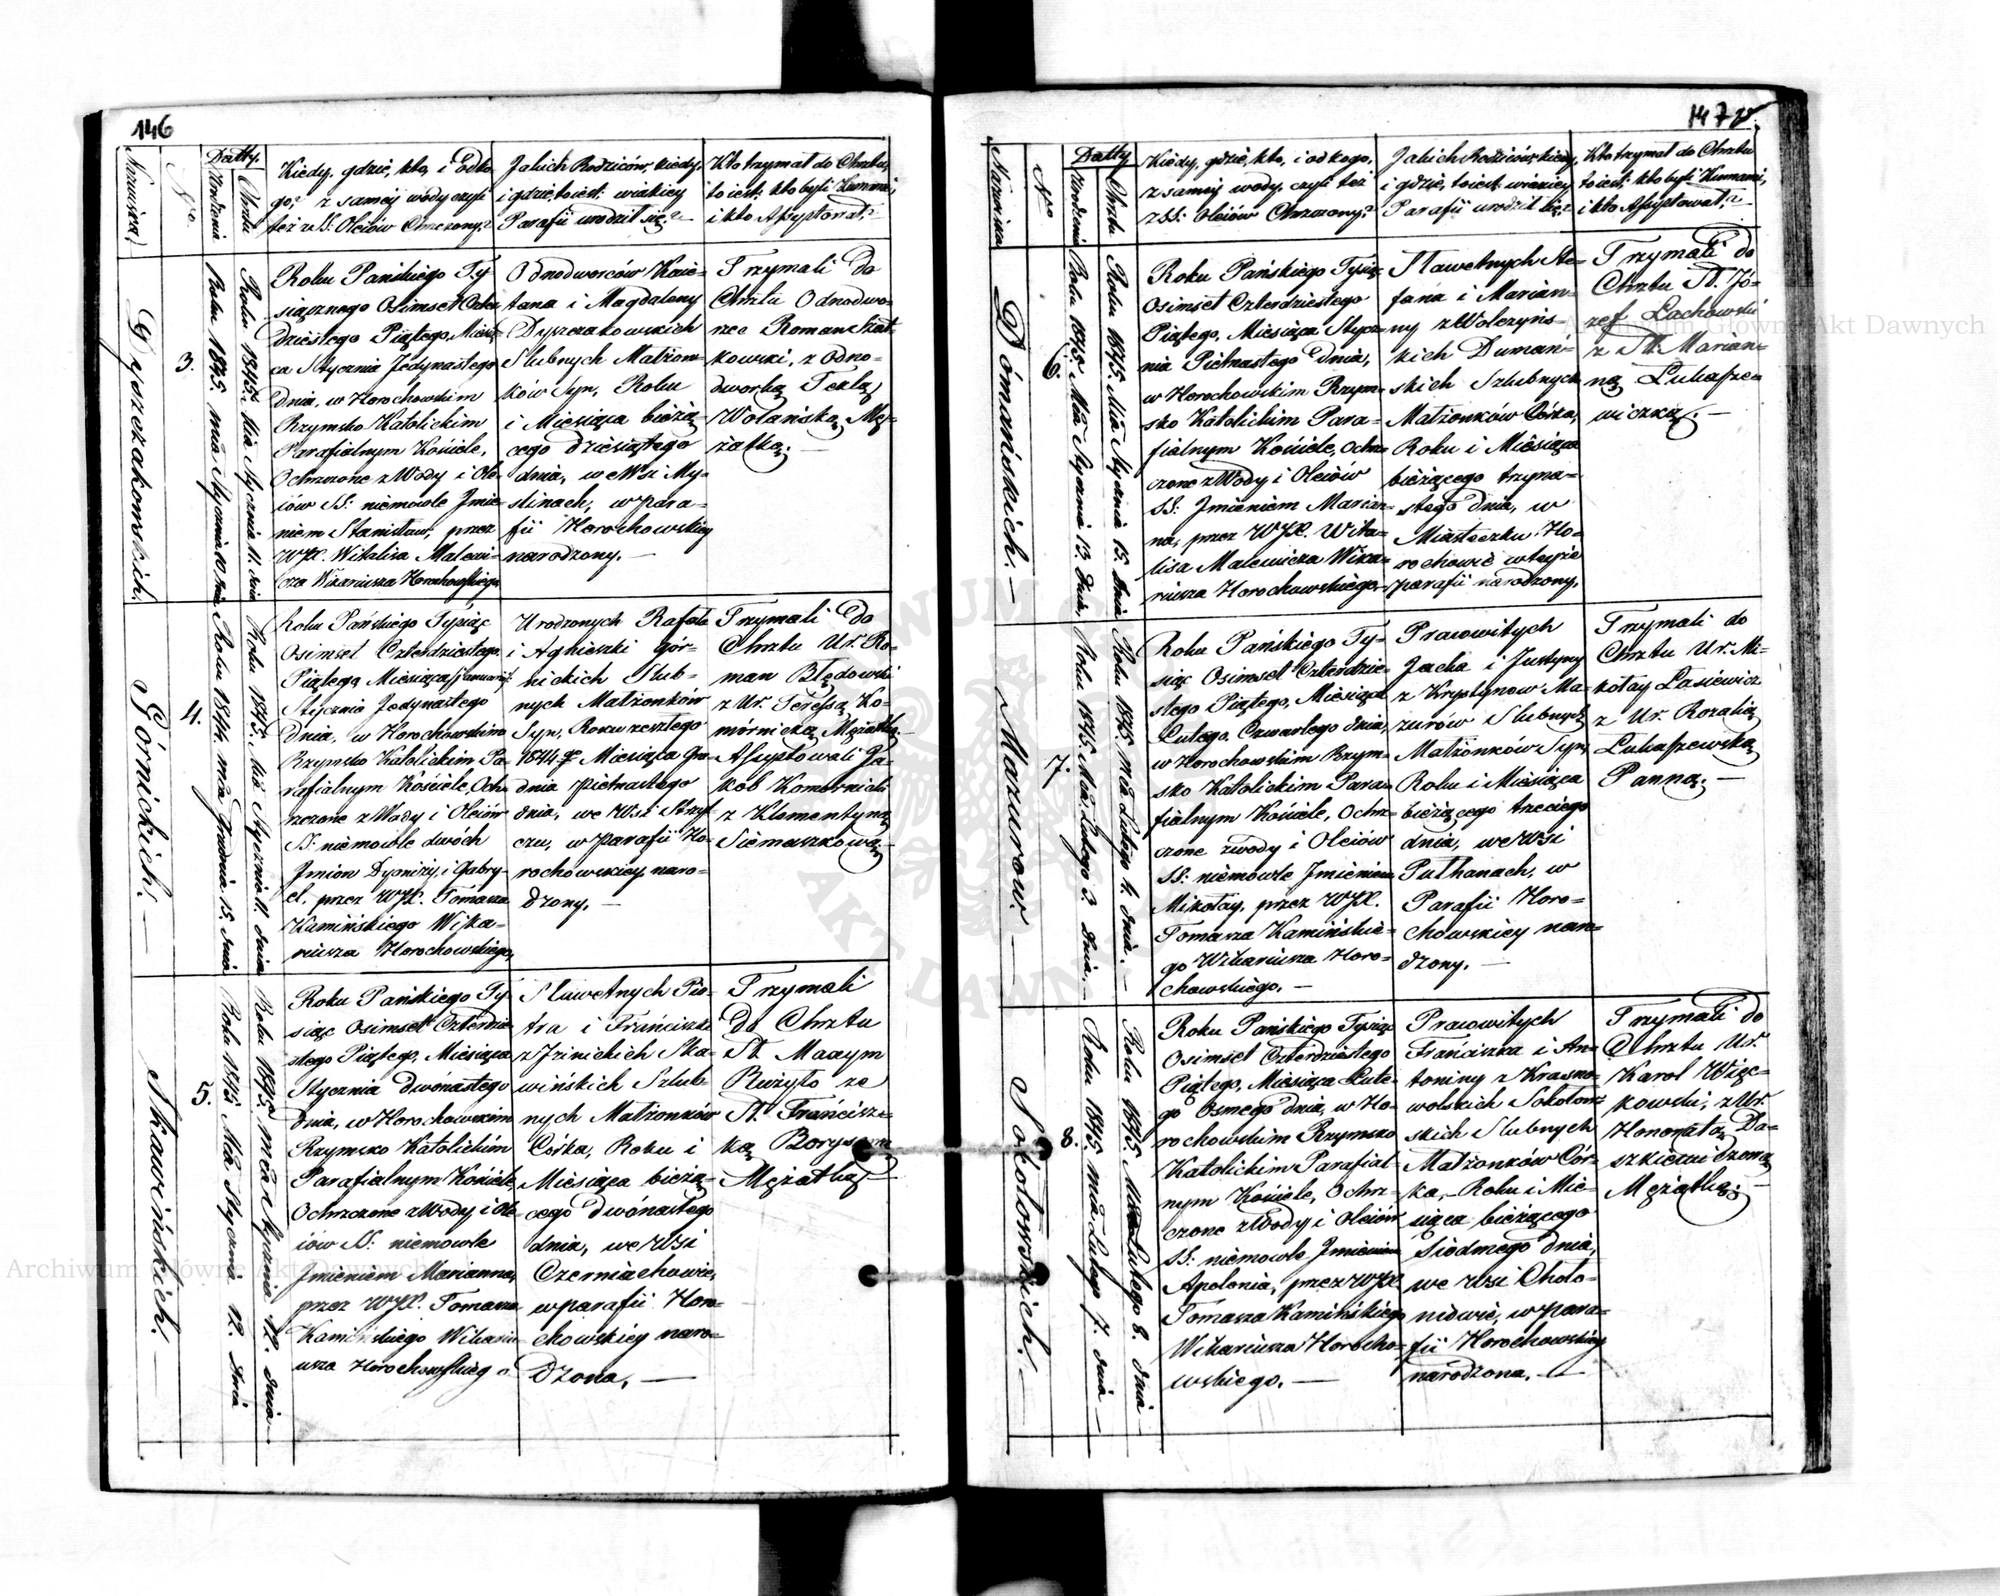 146
Nazwiska
No
Datty.
Urodzenia
Chrztu
Kiedy, gdzie, kto, i od ko
go? z samej wody czyli
też z S: Oleiów Chrzczony?
Jakich Rodziców, kiedy
i gdzie, to iest: w iakiey
Parafii urodził się?
Kto trzymał do Chrztu,
to iest: kto byli Kumami,
i kto Assystował?
Dyszczakowskich.
3.
Roku 1845. Mca Stycznia 10. dnia
Roku 1845. Mca Stycznia 11. dnia
Roku Pańskiego Ty
siącznego Osimset Czter
dziestego Piątego, Miesią
ca Stycznia Jedynastego
dnia, w Horochowskim
Rzymsko Katolickim
Parafialnym Kościele,
Ochrzczone z Wody i Ole
iów SS: niemowle Jmie
niem Stanisław, przez
WJX. Witalisa Malewi
cza Wikariusza Horochowskiego
Odnodworców Kaie=
tana i Magdaleny
Dyszczakowskich
Slubnych Małżon=
ków Syn, Roku
i Miesiąca bieżą=
cego dziesiątego
dnia, we Wsi My=
slinach, w para=
fii Horochowskiey
narodzony. —
Trzymali do
Chrztu Odnodwo=
rzec Roman Szat
kowski, z Odno=
dworką Teklą
Wolańską Mę=
żatką. —
Górnickich. —
4.
Roku 1844. mca Grudnia 15. dnia
Roku 1845. Mca Stycznia 11. dnia
Roku Pańskiego Tysiąc
Osimset Czterdziestego
Piątego, Miesiąca Januarii
Stycznia Jedynastego
dnia, w Horochowskim
Rzymsko Katolickim Pa
rafialnym Kościele, Och
rzczone z Wody i Oleiów
SS: niemowle dwóch
Jmion Dyonizy, i Gabry=
el, przez WJX. Tomasza
Kamińskiego Wika=
riusza Horochowskiego,
Urodzonych Rafała
i Agnieszki Gór=
nickich Slub=
nych Małżonków
Syn, Roku zeszłego
1844 Miesiąca Gru
dnia Piętnastego
dnia, we Wsi
czu, w parafii Ho=
rochowskiey naro=
dzony. —
Trzymali do
Chrztu Ur. Ro=
man Błędowski
z Ur. Teressą Ko=
mornicką Mężatką.
Assystowali Ja=
kób Komornicki
z Klementyną
Siemaszkową. —
Skawińskich. —
5.
Roku 1845. Mca Stycznia 12. dnia
Roku 1845. Mca Stycznia 12. dnia
Roku Pańskiego Ty=
siąc Osimset Czterdzie
stego Piątego, Miesiąca
Stycznia dwónastego
dnia, w Horochowskim
Rzymsko Katolickim
Parafialnym Kościele,
Ochrzczone z Wody i Ole
iów SS: niemowle
Jmieniem Marianna,
przez WJX. Tomasza
Kamińskiego Wikari=
usza Horochowskiego
Sławetnych Pio=
tra i Franciszki
z Jzinickich Ska=
wińskich Szlub=
nych Małżonków
Córka, Roku i
Miesiąca bieżą=
cego dwónastego
dnia, we Wsi
Czerniachowie,
w parafii Horo=
chowskiey naro=
dzona. —
Trzymali
do Chrztu
St. Maxym
Rużyło ze
St. Francisz=
ką Borysow
Mężatką —
147
Nazwiska
No
Datty
Urodzenia
Chrztu
Kiedy, gdzie, kto, i od kogo,
z samey wody, czyli też
z SS: Oleiów Chrzczony?
Jakich Rodziców, kiedy,
i gdzie, to iest: w iakiey
Parafii urodził się?
Kto trzymał do Chrztu
to iest: kto byli Kumami,
i kto Assystował?
Domańskich. —
6.
Roku 1845. Mca Stycznia 13. dnia,
Roku 1845. Mca Stycznia 15. dnia
Roku Pańskiego Tysiąc
Osimset Czterdziestego
Piątego, Miesiąca Stycz=
nia Piętnastego dnia,
w Horochowskim Rzym=
sko Katolickim Para=
fialnym Kościele, Ochrz
czone z Wody i Oleiów
SS: Jmieniem Marian=
na, przez WJX. Wita=
lisa Malewicza Wika=
riusza Horochowskiego.
Sławetnych Ste=
fana i Marian=
ny z Wolczyńs=
kich Dumań=
skich Szlubnych
Małżonków Córka,
Roku i Miesiąca
bieżącego trzyna=
stego dnia, w
Miasteczku Ho=
rochowie w teyże
parafii narodzony.
Trzymali do
Chrztu St. Jó=
zef Lachowski
z St. Marian=
ną Łukasze=
wiczką. —
Mazurow. —
7.
Roku 1845. Mca Lutego 3. dnia. —
Roku 1845. Mca Lutego 4. dnia. —
Roku Pańskiego Ty=
siąc Osimset Czterdzie=
stego Piątego, Miesiąca
Lutego, Czwartego dnia,
w Horochowskim Rzym=
sko Katolickim Para=
fialnym Kościele, Ochrz=
czone z wody i Oleiów
SS: niemowle Jmieniem
Mikołay, przez WJX.
Tomasza Kamińskie=
go Wikariusza Horo=
chowskiego. —
Pracowitych
Jacha i Justyny
z Krystynow Ma=
zurów Slubnych
Małżonków Syn,
Roku i Miesiąca
bieżącego trzeciego
dnia, we Wsi
Pulhanach, w
Parafii Horo=
chowskiey naro=
dzony. —
Trzymali do
Chrztu Ur. Mi=
kołay Lasiewicz
z Ur. Rozalią
Łukaszewską
Panną. —
Sokołowskich. —
8.
Roku 1845. Mca Lutego 7. dnia —
Roku 1845. Mca Lutego 8. dnia
Roku Pańskiego Tysiąc
Osimset Czterdziestego
Piątego, Miesiąca Lute=
go Osmego dnia, w Ho=
rochowskim Rzymsko
Katolickim Parafial=
nym Kościele, Ochrz=
czone z Wody i Oleiów
SS: niemowle Jmieniem
Apolonia, przez WJX
Tomasza Kamińskiego
Wikariusza Horocho=
wskiego. —
Pracowitych
Franciszka i An=
toniny z Krasno=
wolskich Sokołow
skich Slubnych
Małżonków Cór=
ka, Roku i Mie=
siąca bieżącego
Siodmego dnia,
we Wsi Choło=
niowie, w para=
fii Horochowskiey
narodzona. —
Trzymali do
Chrztu Ur.
Karol Więc=
kowski, z Ur.
Honoratą Da=
szkiewiczową
Mężatką. —
Archiwum Główne Akt Dawnych
Archiwum Główne Akt Dawnych